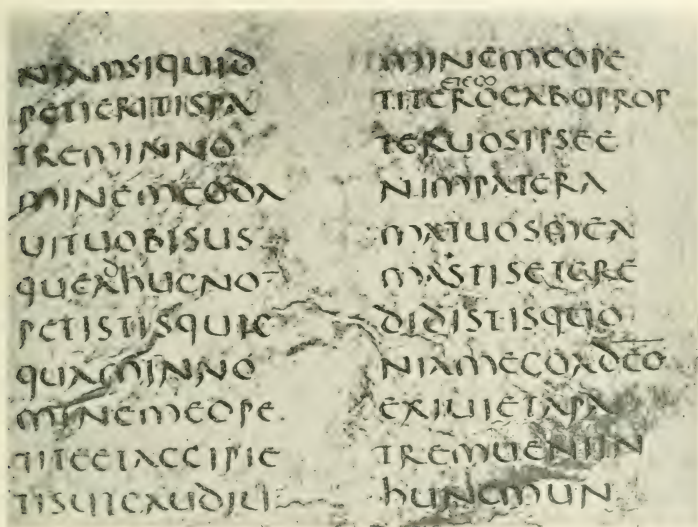 NIAMSIQUID
PETIERITISPA
TREMINNO
MINEMEODA
UITUOBISUS
QUEAdHUCNO
PETISTISQUIC
QUAMINNO
MINEMEOPE
TITEETACCIPIE
TISUTGAUDIU
MINEMEOPE
etego
TITEROGABOPROP
TERUOSIPSEE
NIMPATERA
MATUOSMEA
MASTISETCRE
DIDISTISQUO
NIAMEGOADEO
EXIUIETAPA
TREMUENIIN
HUNCMUN